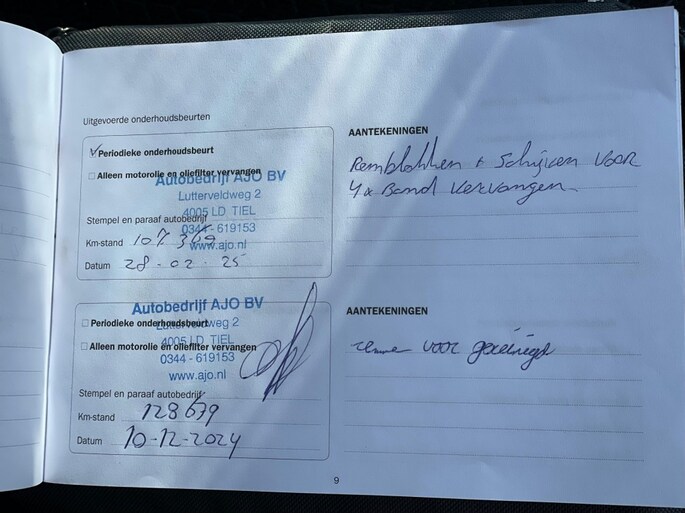 Uitgevoerde onderhoudsbeurten
Periodieke onderhoudsbeurt
Alleen motorolie en oliefilter vervangen
Autobedrijf AJO BV
Lutterveldweg 2
4005 LD TIEL
0344 - 619153
www.ajo.nl
Stempel en paraaf autobedrijf
Km-stand 107369
Datum 28-02-25
AANTEKENINGEN
Remblokken + Schijven voor
4x Band vervangen
Autobedrijf AJO BV
Periodieke onderhoudsbeurt
Lutterveldweg 2
4005 LD TIEL
Alleen motorolie en oliefilter vervangen
0344 - 619153
www.ajo.nl
Stempel en paraaf autobedrijf
Km-stand 128679
Datum 10-12-2024
AANTEKENINGEN
voor gereinigd
9